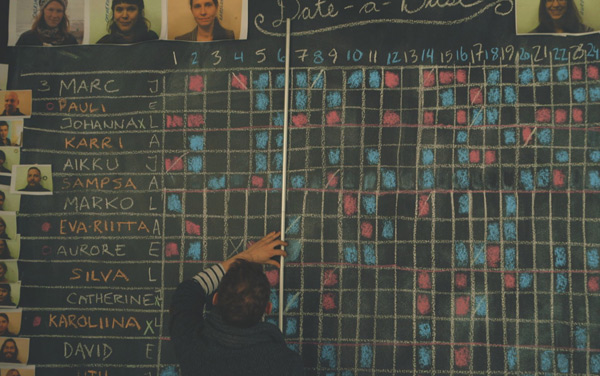 Date-a-
1 2 3 4 5 6 7 8 9 10 11 12 13 14 15 16 17 18 19 20 21 22 23 24
3 MARC J
PAULI E
JOHANNA XL
KARRI A
AIKKU J
SAMPSA A
MARKO L
EVA-RIITTA A
AURORE E
SILVA L
CATHERINE
KAROLIINA XL
DAVID E